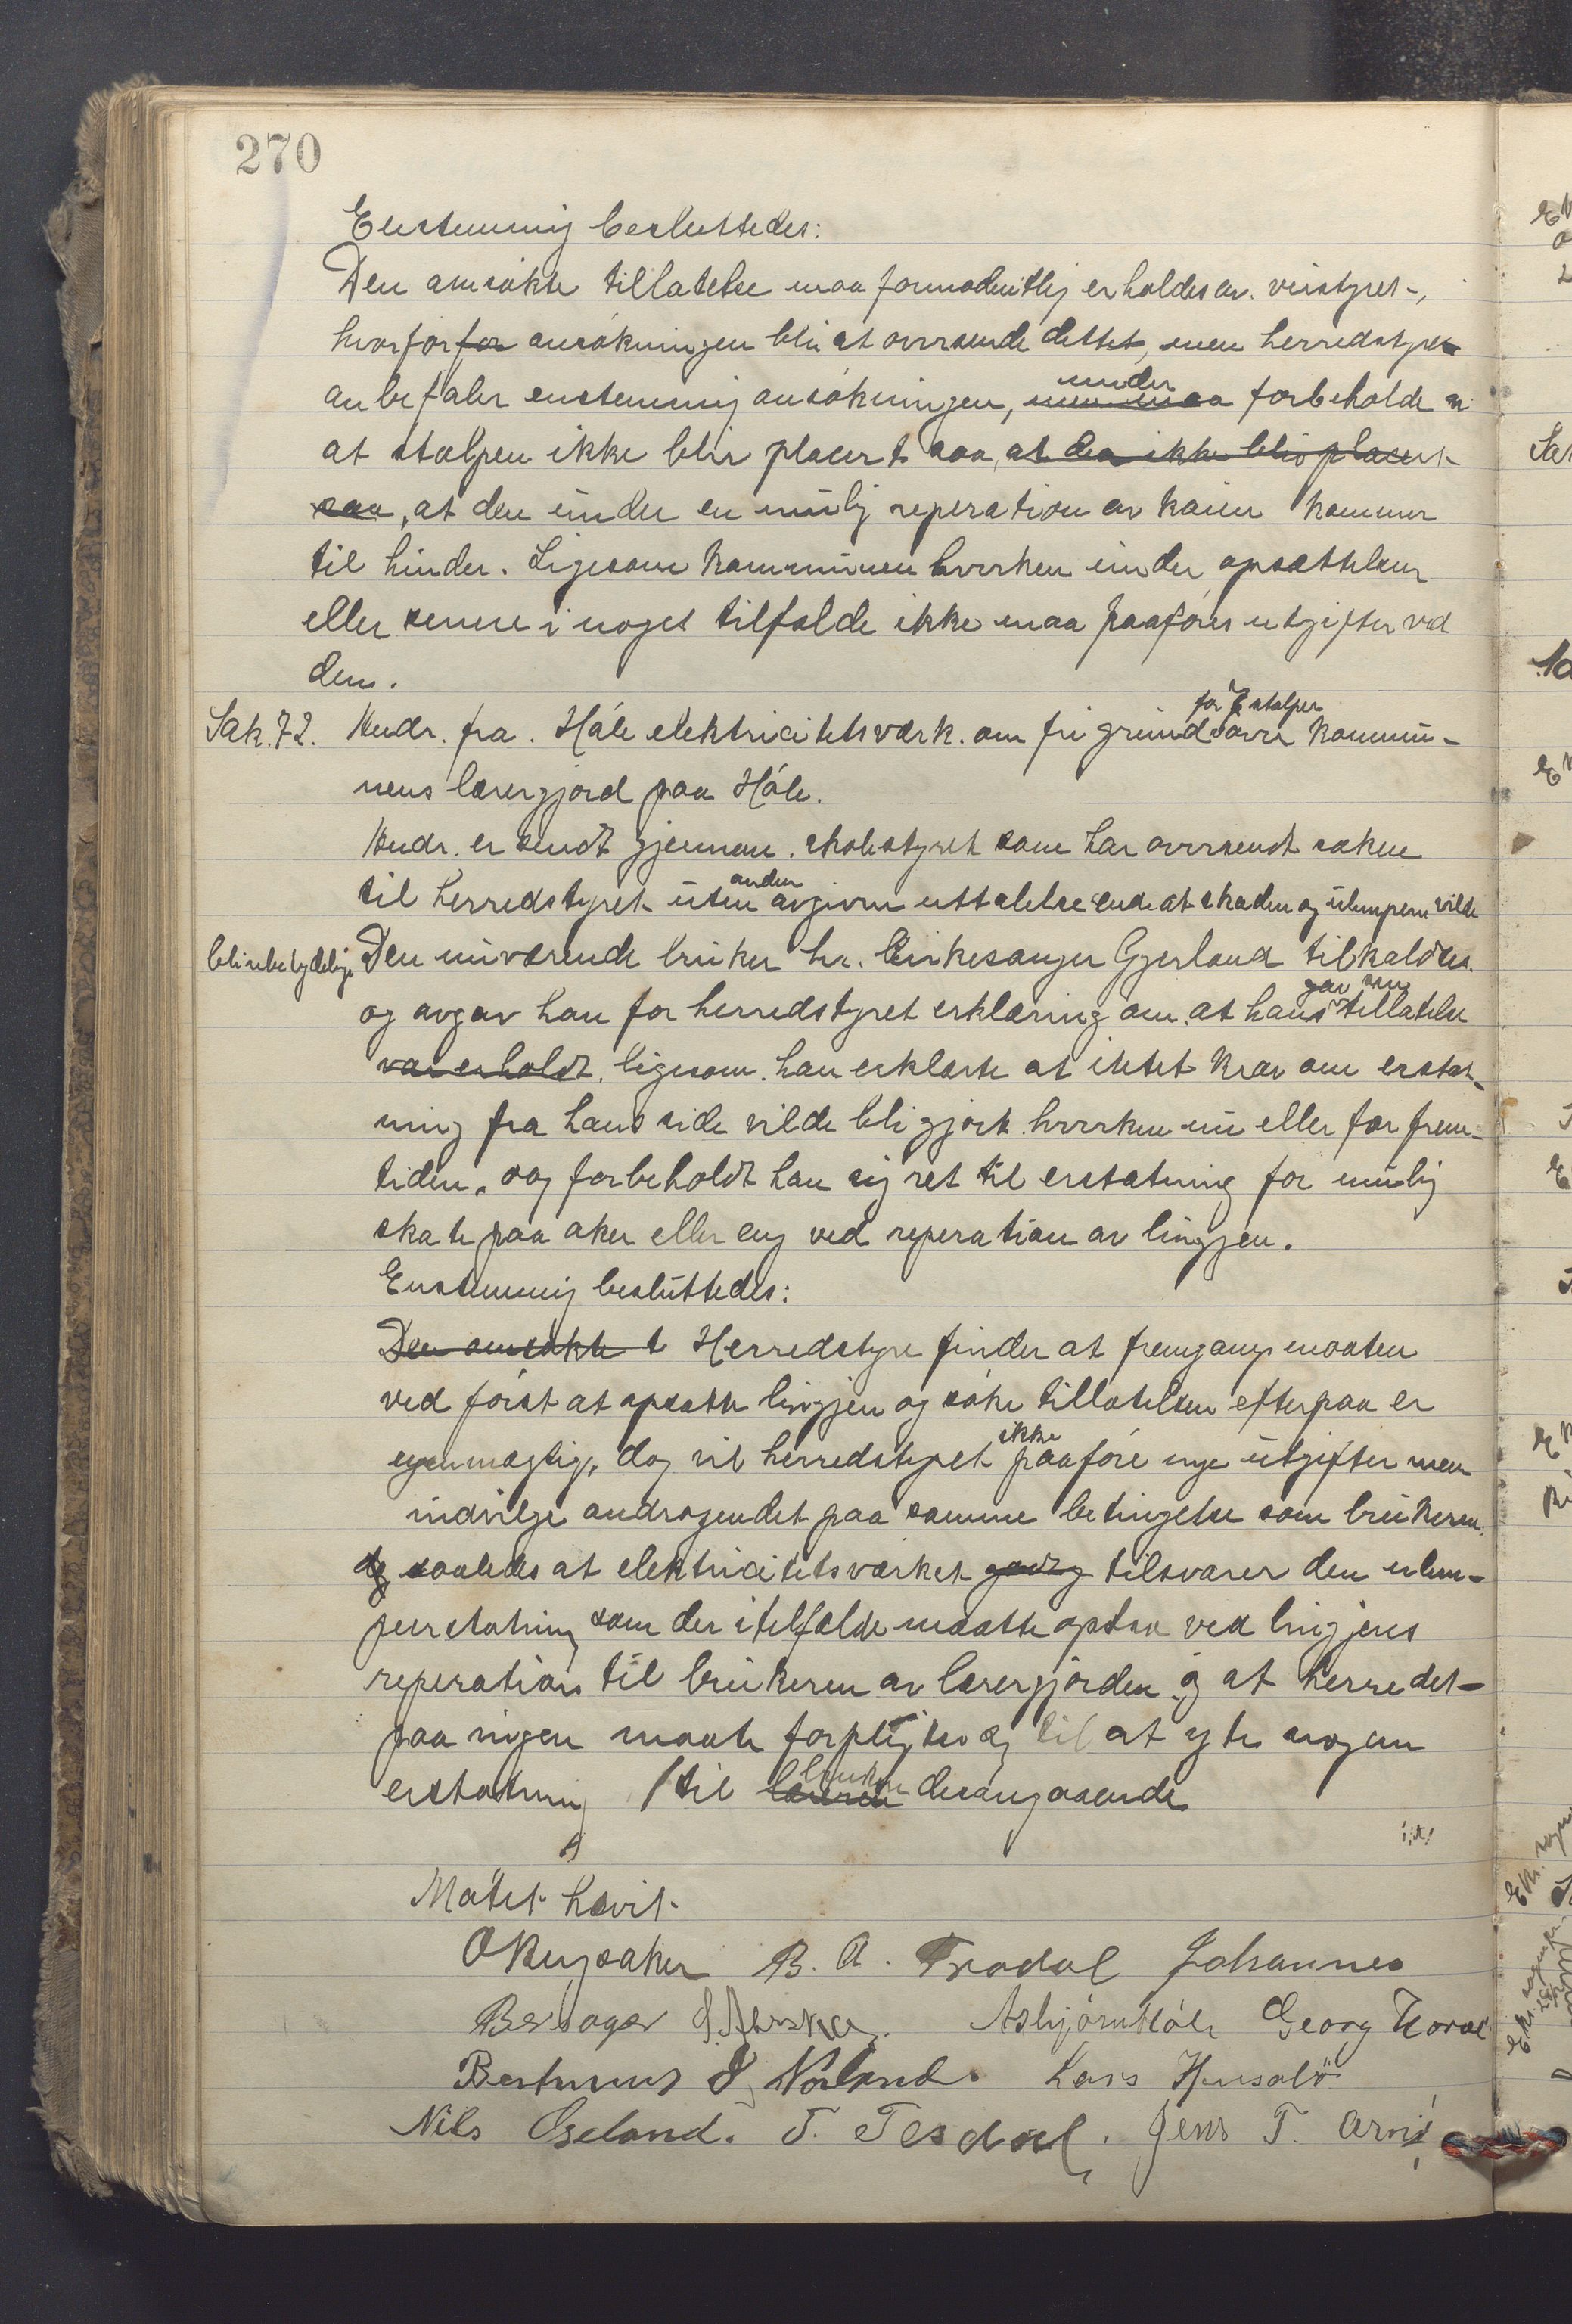 270
Enstemmig besluttedes:
Den ansøkte tillatelse maa formodentlig erholdes av. veistyret,
hvorfor for ansøkningen blir at oversende dettet, men herredstyret
anbefaler enstemmig ansøkningen, men maa under forbeholde n
at stolpen ikke blir placert saa, at den ikke blir placert
saa, at den under en mulig reperation av kaien kommer
til hinder. Ligesom kommunen hverken under opsættelsen
eller senere i noget tilfælde ikke maa paaføres utgifter ved
den.
Sak. 72. Andr. fra. Håle elektricitetsværk. om fri grund for 7 stolper over kommu-
nens lærergjord paa Håle.
Andr. er sendt gjennem. skolestyret som har oversendt saken
til herredstyret uten anden avgiven uttalelse end at skaden og ulempern vilde
bli ubetydelige Den nuværende bruker hr. kirkesanger Gjerland tilkaldtes.
og avgav han for herredstyret erklæring om. at hans gav sin tillatelse
var erholdt. ligesom. han erklærte at intet krav om erstat-
ning fra hans side vilde bli gjort. hverken nu eller for frem-
tiden. og forbeholdt han sig ret til erstatning for mulig
skate paa aker eller eng ved reperation av lingjen.
Enstemmig besluttedes:
Den ansøkte t Herredstyre finder at fremgangsmaaten
ved først at opsætte lingjen og søke tillatelsen efterpaa er
egenmægtig, dog vil herredstyret ikke paaføre nye utgifter men
indvilge andragendet paa samme betingelse som brukeren.
og saaledes at elektricitetsværket tilsvarer den ulem-
peerstatning som der i tilfælde maatte opstaa ved lingjens
reperation til brukeren av lærergjorden og at herredet
paa ingen maate forpligter sig til at yte nogen
erstatning til læreren bruker desangaaende
Møtet hævit.
O Kugsaker B. A. Frodal Johannes
Berhager Asbjørn Håle Georg
J. Norland. Lars
Nils Oseland. T. Tesdal. Jens T. Arne